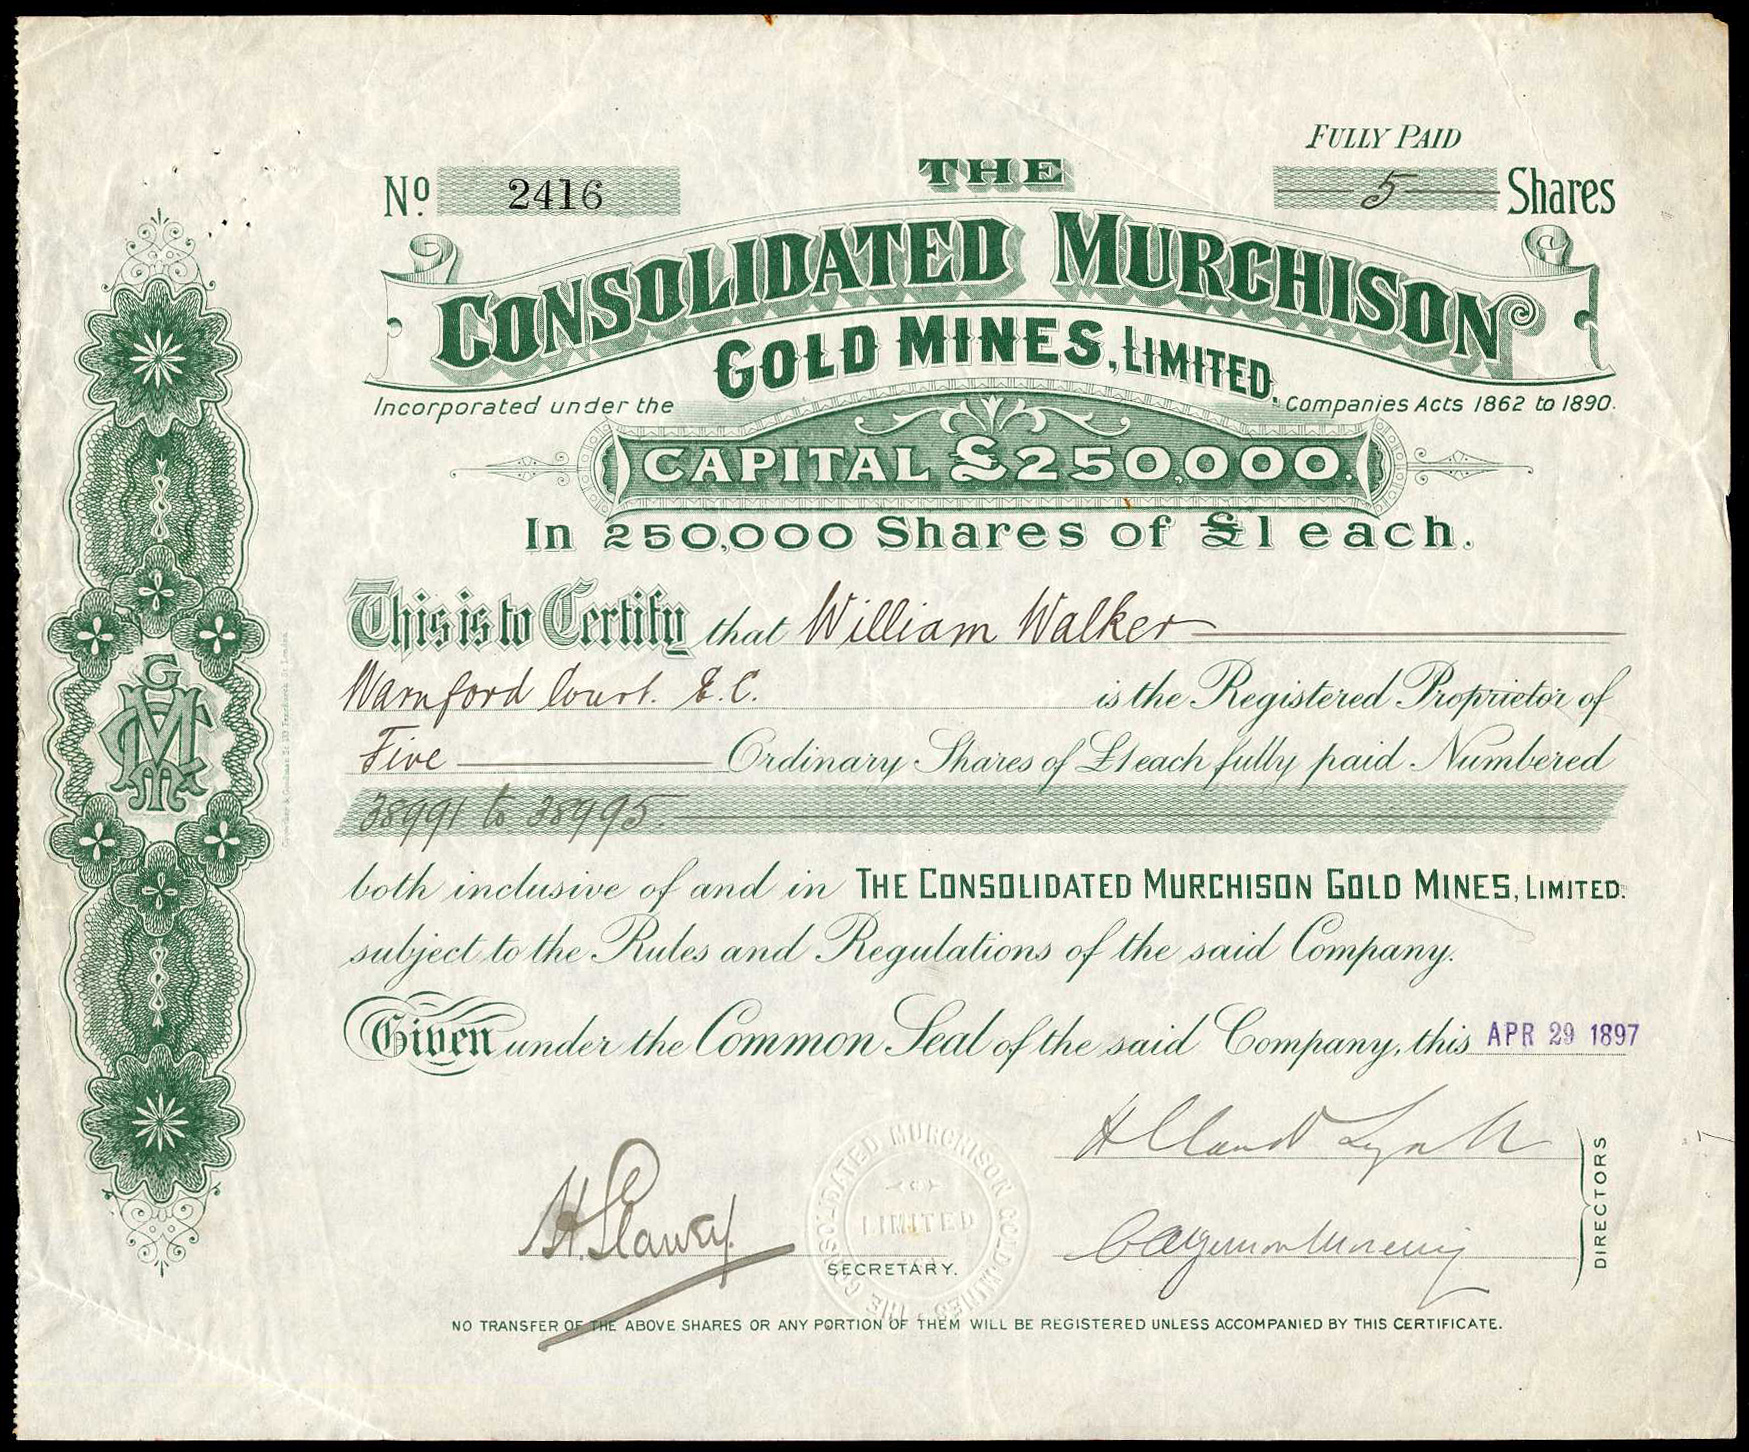 FULLY PAID
No. 2416
5 Shares
THE
CONSOLIDATED MURCHISON
GOLD MINES, LIMITED.
Incorporated under the Companies Acts 1862 to 1890.
CAPITAL £250,000.
In 250,000 Shares of £1 each.
This is to Certify that William Walker
Warnford Court. E.C. is the Registered Proprietor of
Five Ordinary Shares of £1 each fully paid Numbered
38991 to 38995.
both inclusive of and in THE CONSOLIDATED MURCHISON GOLD MINES, LIMITED.
subject to the Rules and Regulations of the said Company.
Given under the Common Seal of the said Company, this APR 29 1897
DIRECTORS
THE CONSOLIDATED MURCHISON GOLD MINES
LIMITED
SECRETARY.
NO TRANSFER OF THE ABOVE SHARES OR ANY PORTION OF THEM WILL BE REGISTERED UNLESS ACCOMPANIED BY THIS CERTIFICATE.